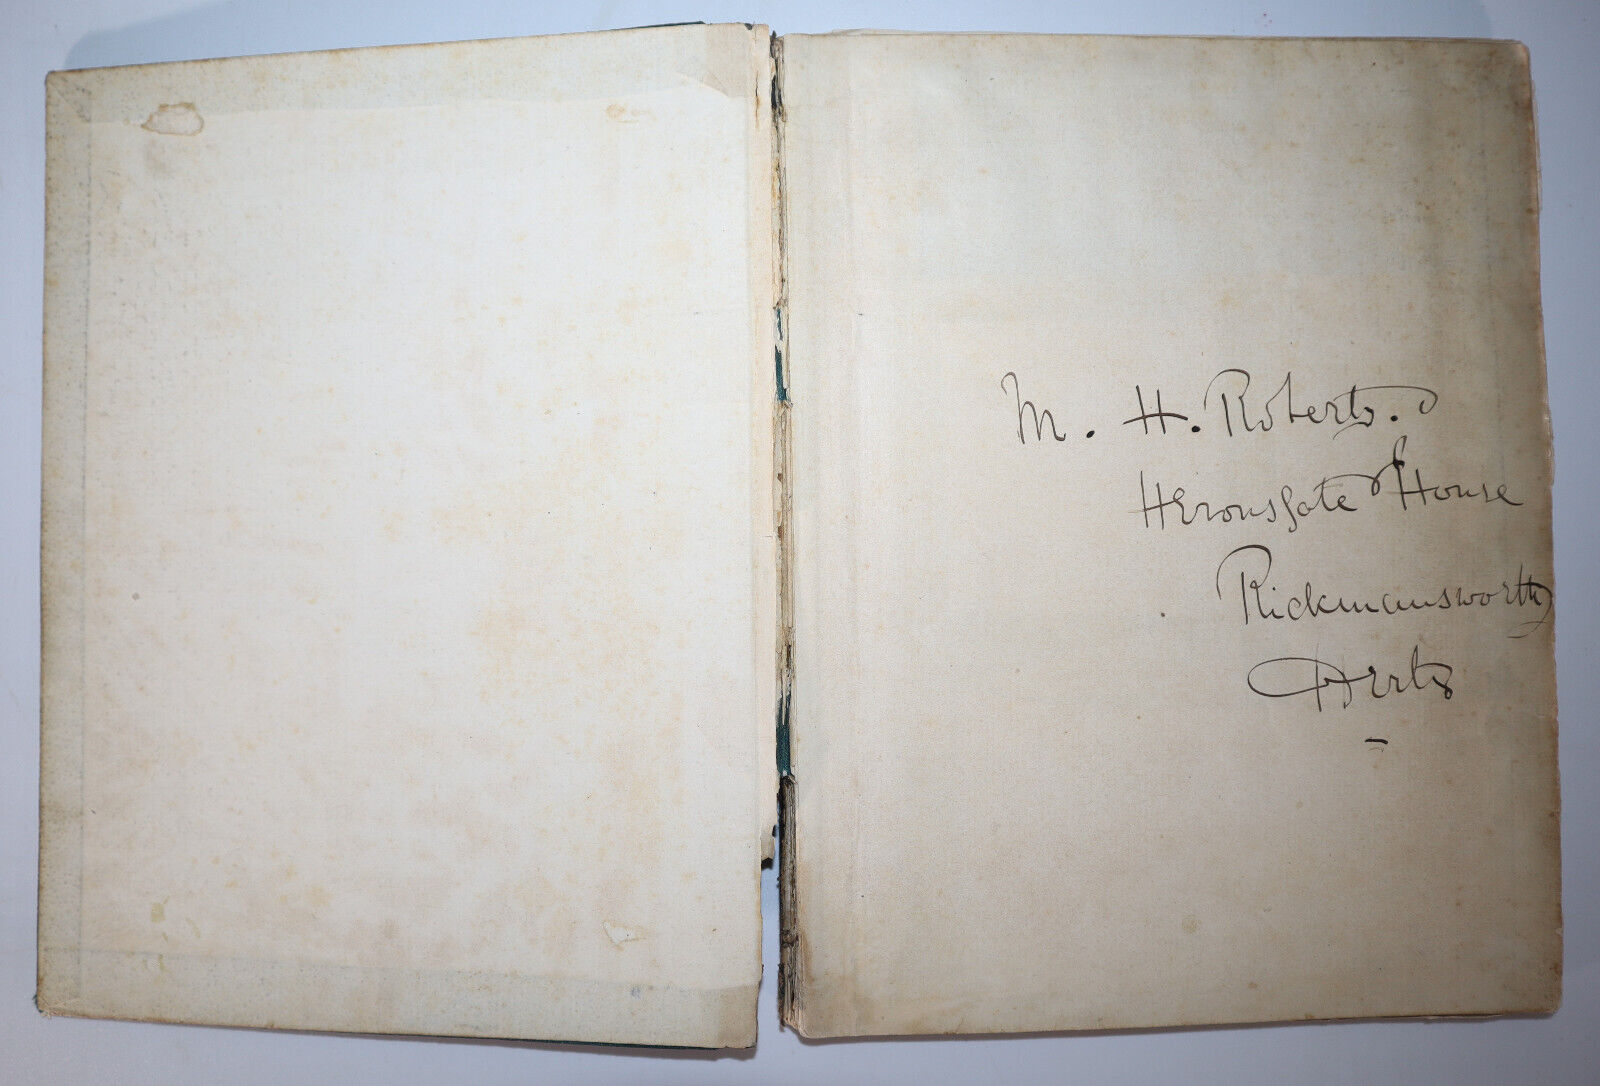 M. H. Roberts.
Heronsgate House
Rickmansworth
Herts